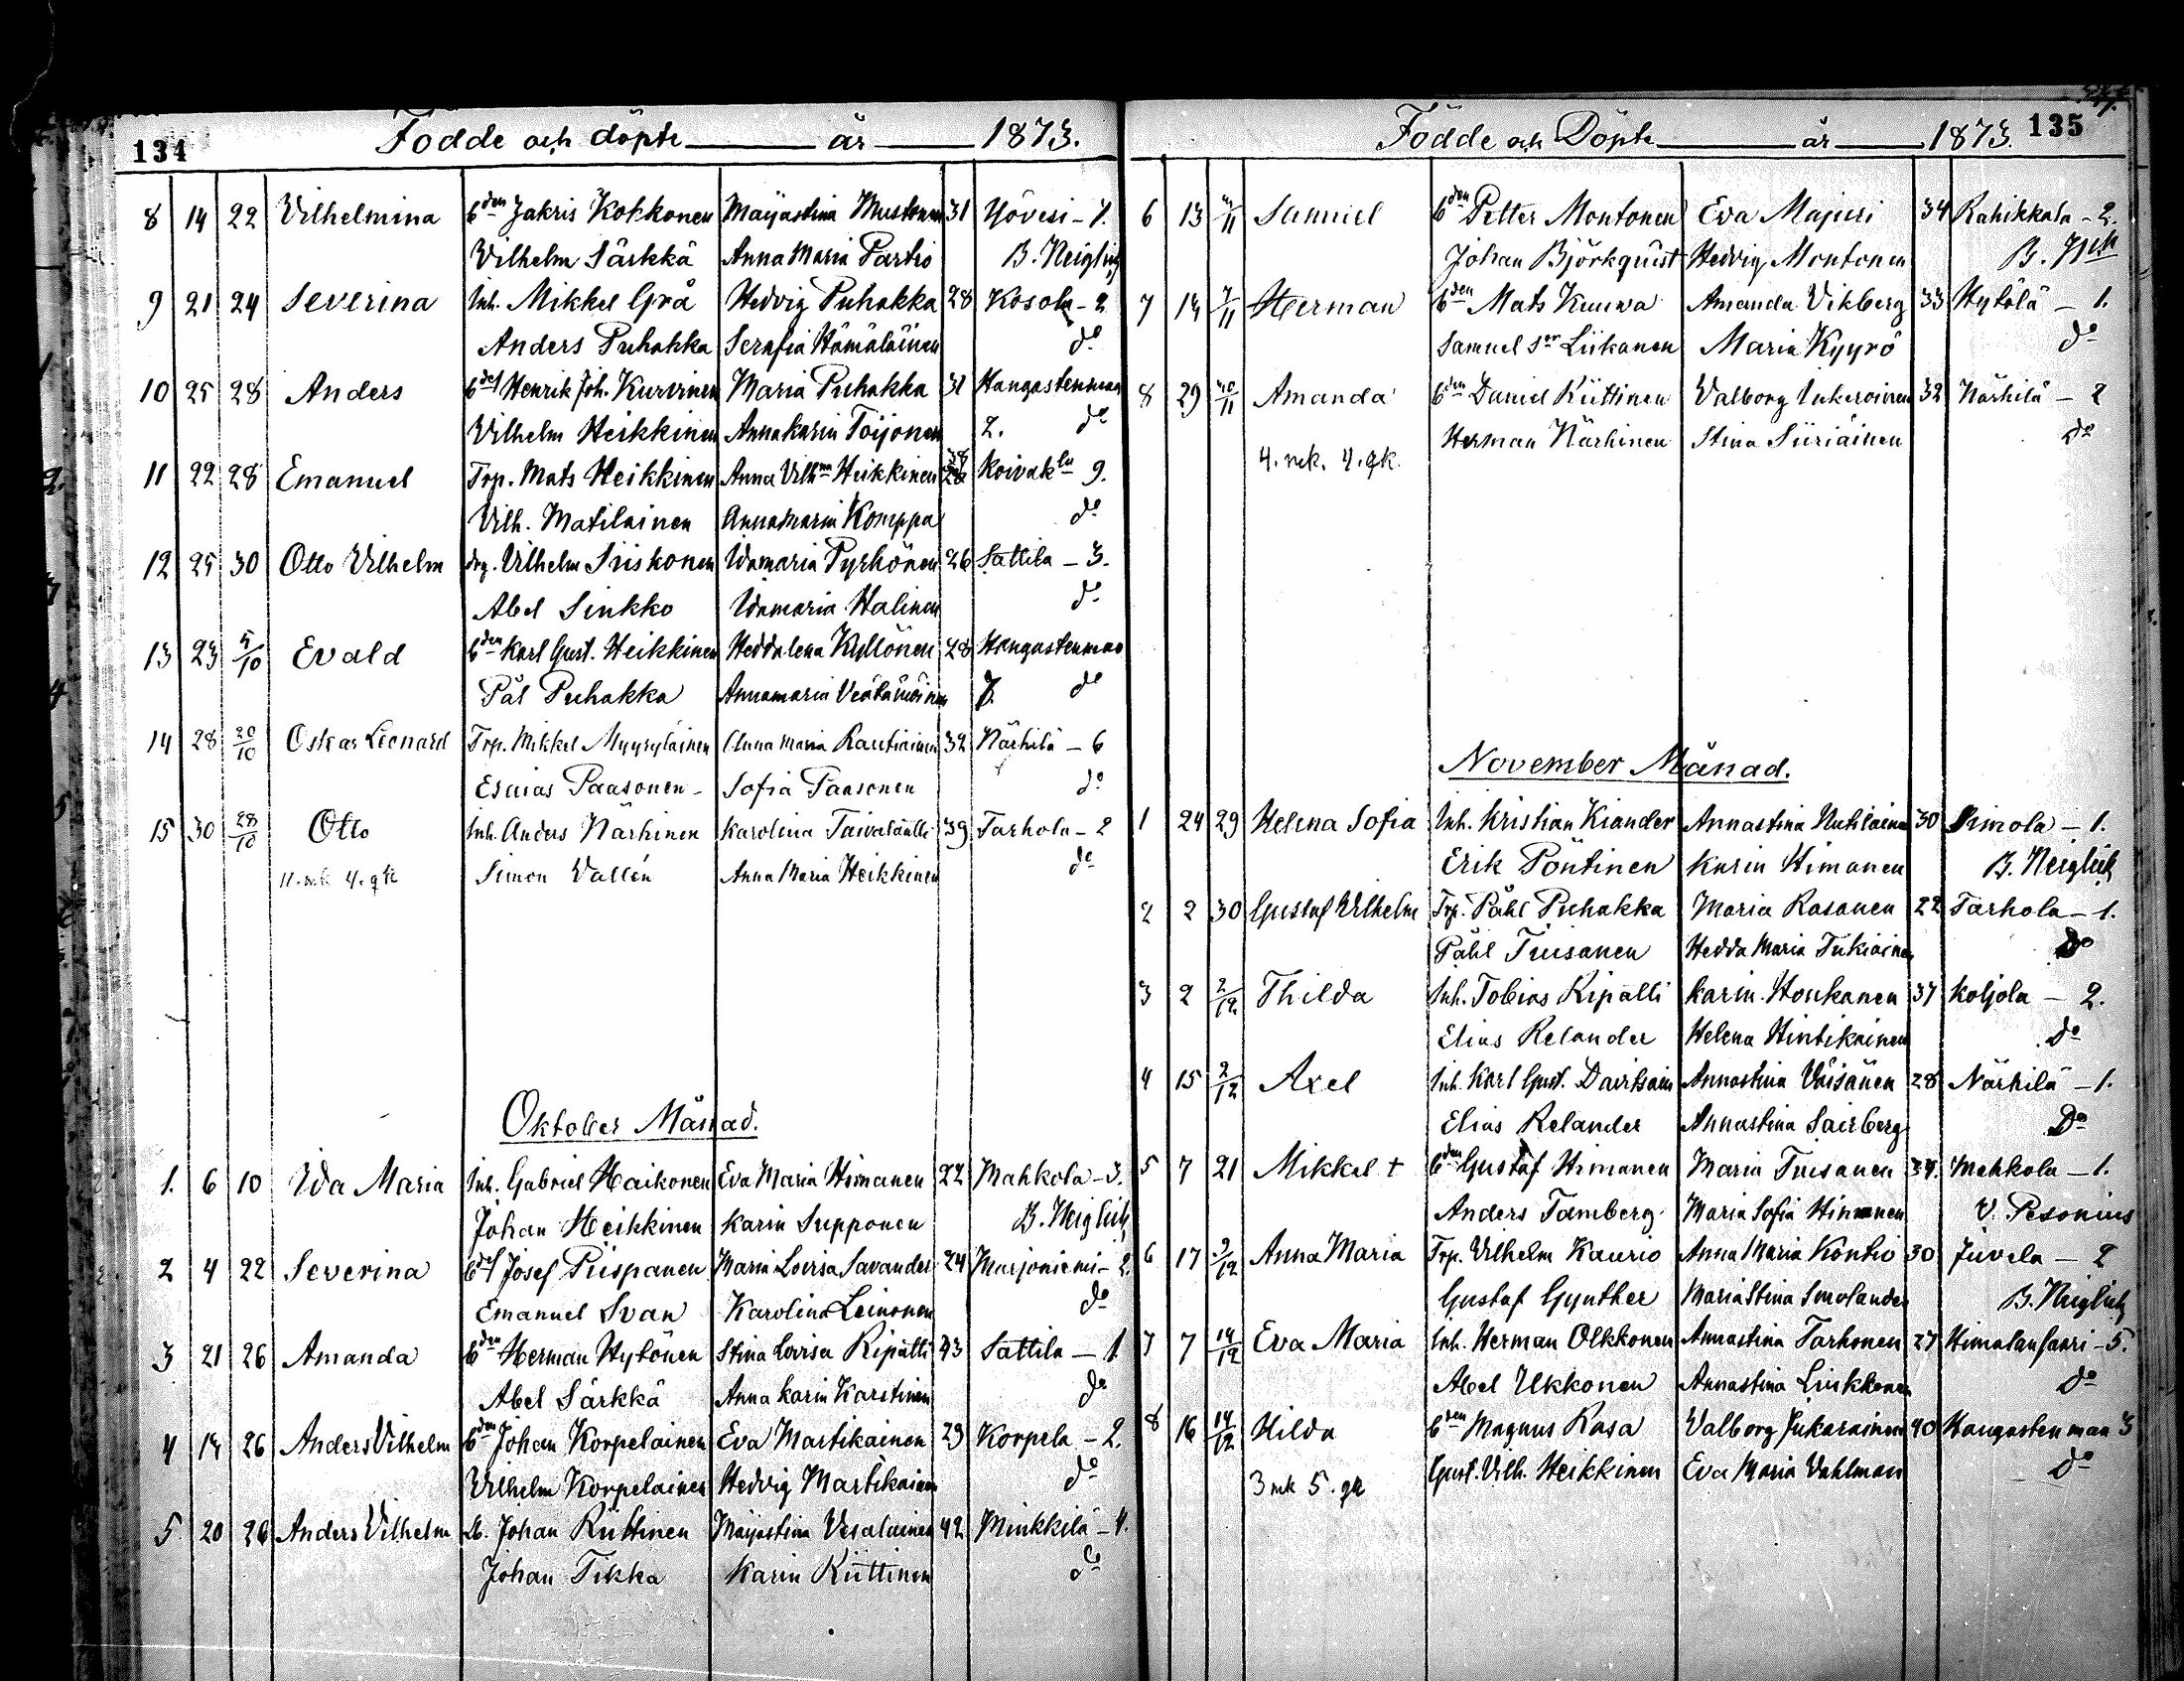 134 Födde och döpte år 1873.
8 14 22 Vilhelmina 6den Zakris Kokkonen Majastina Mustonen 31 Yövesi - 7.
Vilhelm Särkkä Anna Maria Partio B. Neiglick
9 21 24 Severina Inh. Mikkel Grå Hedvig Puhakka 28 Kosola - 2
Anders Puhakka Serafia Hämäläinen do
10 25 28 Anders Henrik Joh. Kurvinen Maria Puhakka 31 Hangastenmaa
Vilhelm Heikkinen Annakarin Toijonen 2. do
11 22 28 Emanuel Trp. Mats Heikkinen Anna Vilhna Heikkinen 28 Koivakla 9.
Vilh. Matilainen Annamaria Komppa do
12 25 30 Otto Vilhelm drg. Vilhelm Siiskonen Idamaria Pyrhönen 26 Sattila - 3.
Abel Sinkko Idamaria Halinen do
13 23 5/10 Evald 6den Karl Gust. Heikkinen Heddalena Kyllönen 28 Hangastenmaa
Pål Puhakka Annamaria 7. do
14 28 20/10 Oskar Leonard Trp. Mikkel Myyryläinen Anna Maria Rautiainen 32 Närhilä - 6
Esaias Paasonen - Sofia Paasonen do
15 30 28/10 Otto Inh. Anders Närhinen Karolina 39 Tarhola - 2
11. mk 4. qk Simon Vallén Anna Maria Heikkinen do
Oktober Månad.
1. 6 10 Ida Maria Inh. Gabriel Haikonen Eva Maria Himanen 22 Mahkola - 3.
Johan Heikkinen Karin Supponen B. Neiglick
2 4 22 Severina Josef Piispanen Maria Lovisa Savander 24 Murjoniemi - 2.
Emanuel Svan Karolina Leinonen do
3 21 26 Amanda 6den Herman Hytönen Stina Lovisa Ripatti 43 Sattila - 1
Abel Särkkä Anna Karin Karstinen do
4 14 26 Anders Vilhelm 6den Johan Korpelainen Eva Martikainen 29 Korpela - 2.
Vilhelm Korpelainen Hedvig Martikainen do
5. 20 26 Anders Vilhelm Johan Riittinen Majastina Vesalainen 42 Minkkilä - 4.
Johan Tikka Karin Riittinen do
Födde och Döpte år 1873. 135
6 13 Samuel 6den Petter Montonen Eva Majuri 34 Rahikkala - 2.
Johan Björkquist Hedvig Montonen
7 14 7/11 Herman 6den Mats Kuuva Amanda Vikberg 33 Hytölä - 1.
Samuel Liikanen Maria Kyyrö do
8 29 Amanda 6den Daniel Riittinen Valborg Inkeroinen 32 Närhilä - 2
4. mk. 4. qk. Herman Närhinen Stina Siiriäinen do
November Månad.
1 24 29 Helena Sofia Inh. Kristian Kiander Annastina Nutilainen 30 Simola - 1.
Erik Pöntinen Karin Himanen B. Neiglick
2 2 30 Gustaf Vilhelm Trp. Påhl Puhakka Maria Rasanen 22 Tarhola - 1.
Påhl Tiusanen Hedda Maria Tukiainen Do
3 2 2/12 Thilda Inh. Tobias Ripatti Karin Houkanen 37 Koljola - 2.
Elias Relander Helena Hintikainen Do
4 15 2/12 Axel Inh. Karl Gust. Davitsain Annastina Väisänen 28 Närhilä - 1.
Elias Relander Annastina Sairberg Do
5 7 21 Mikkel † 6den Gustaf Himanen Maria Tiusanen 34. Mahkola - 1.
Anders Tamberg Maria Sofia Himanen V. Pesonius
6 17 9/12 Anna Maria Trp. Vilhelm Kaurio Anna Maria Kontio 30 Juvela - 2
Gustaf Gynther Maria Stina Smolander B. Neiglick
7 7 14/12 Eva Maria Inh. Herman Olkkonen Annastina Tarhonen 27 Himalansaari - 5.
Abel Ukkonen Annastina Liukkonen do
8 16 14/12 Hilda 6den Magnus Rasa Valborg Jukarainen 40 Hangastenmaa 3
3 mk 5. qk Gust. Vilh. Heikkinen Eva Maria Vahlman Do